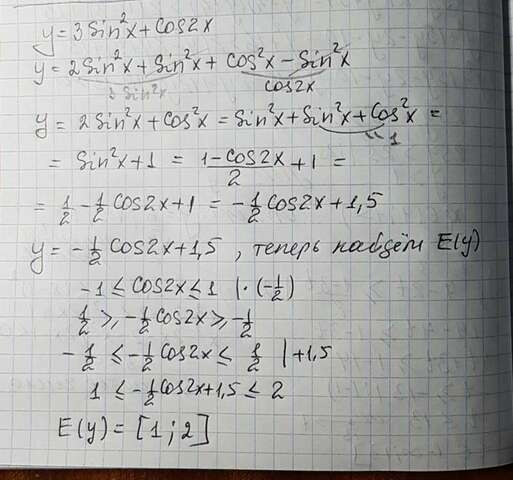 y = 3 Sin²x + Cos2x
y = 2Sin²x + Sin²x + Cos²x − Sin²x
3 Sin²x cos2x
y = 2 Sin²x + Cos²x = Sin²x + Sin²x + Cos²x =
"1
= Sin²x + 1 = (1 − cos2x)/2 + 1 =
= 1/2 − 1/2 Cos2x + 1 = −1/2 Cos2x + 1,5
y = −1/2 Cos2x + 1,5 , теперь найдём E(y)
−1 ≤ cos2x ≤ 1 | · (−1/2)
1/2 ≥ −1/2 Cos2x ≥ −1/2
−1/2 ≤ −1/2 Cos2x ≤ 1/2 | +1,5
1 ≤ −1/2 cos2x + 1,5 ≤ 2
E(y) = [1 ; 2]